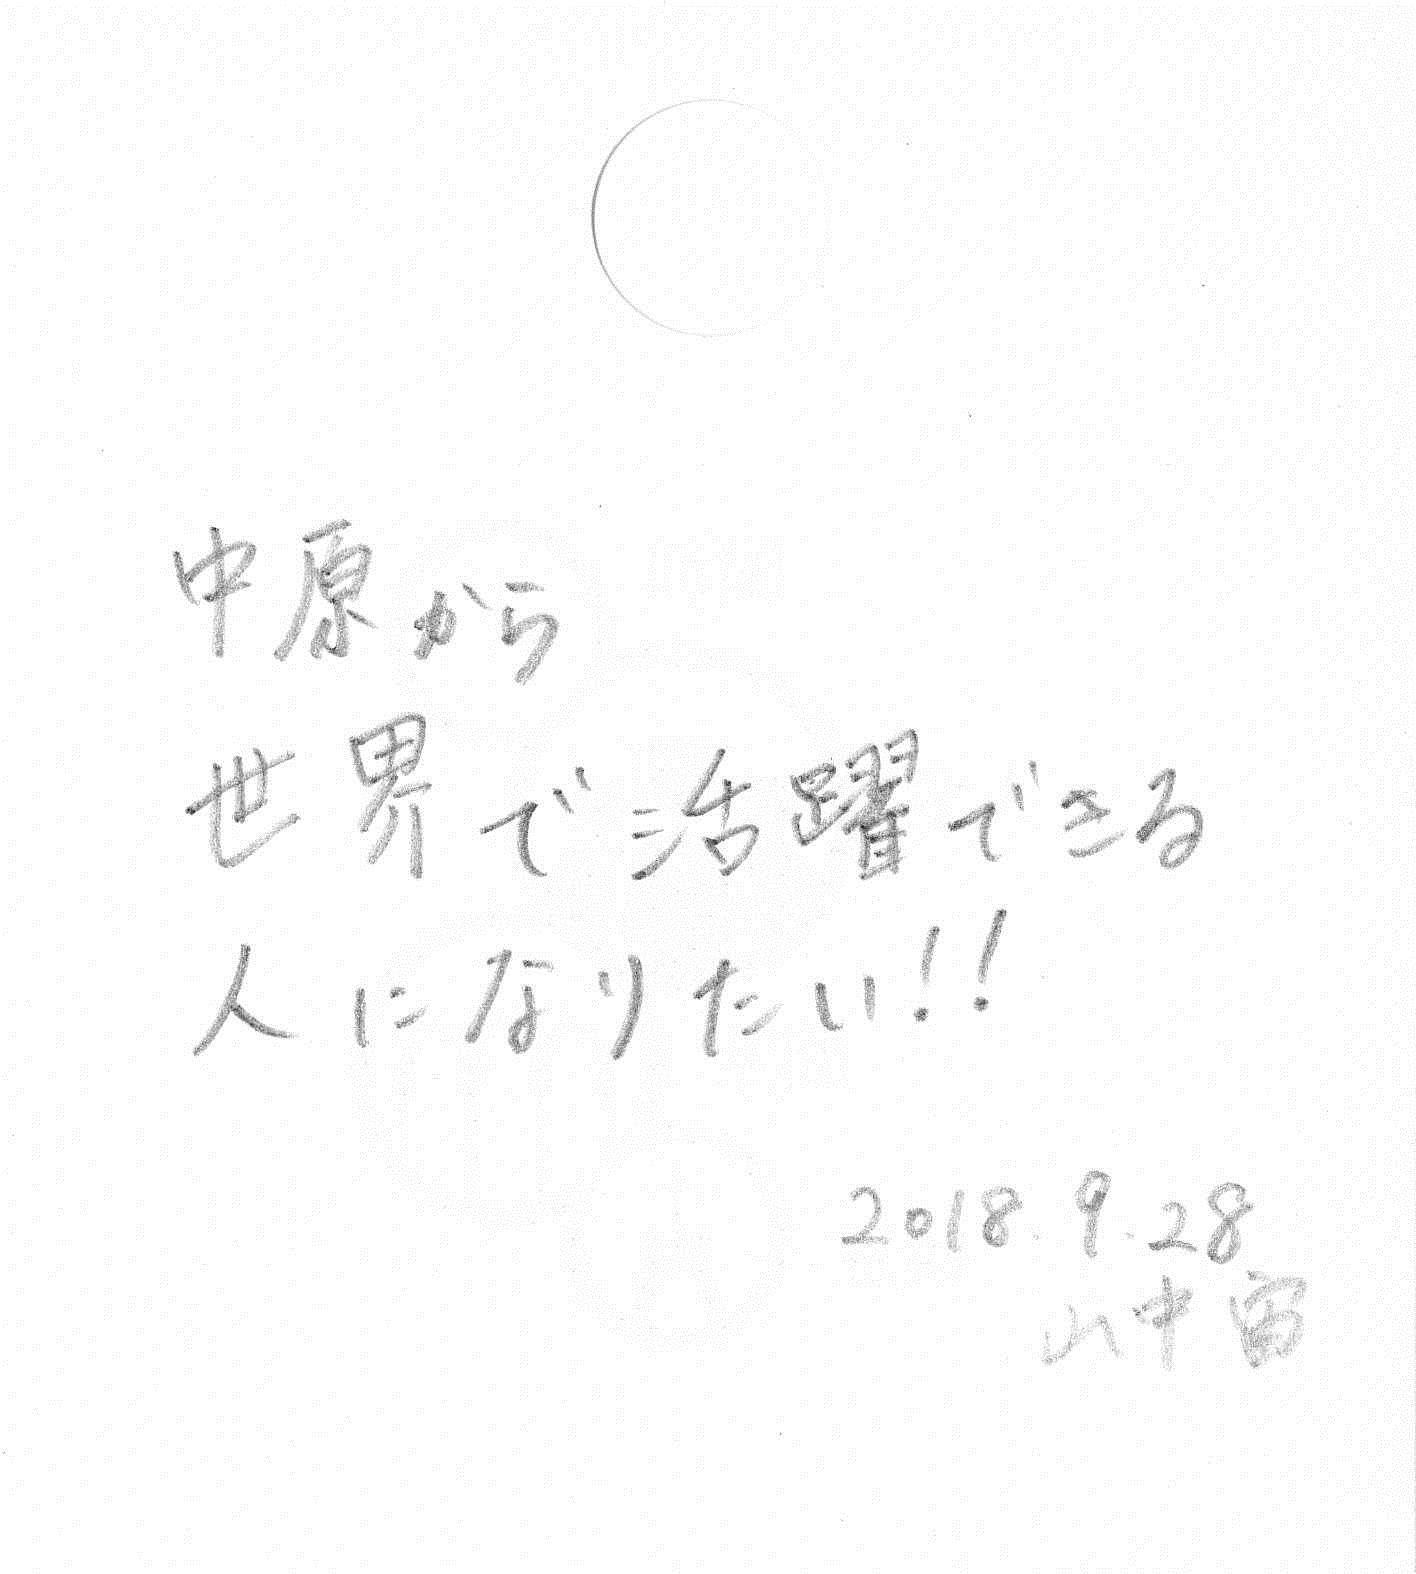 中原から
世界で活躍できる
人になりたい!!
2018.9.28
山中宙